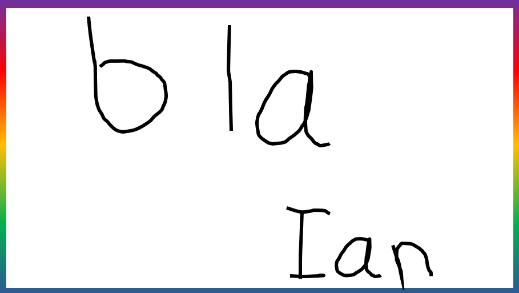 bla
Ian